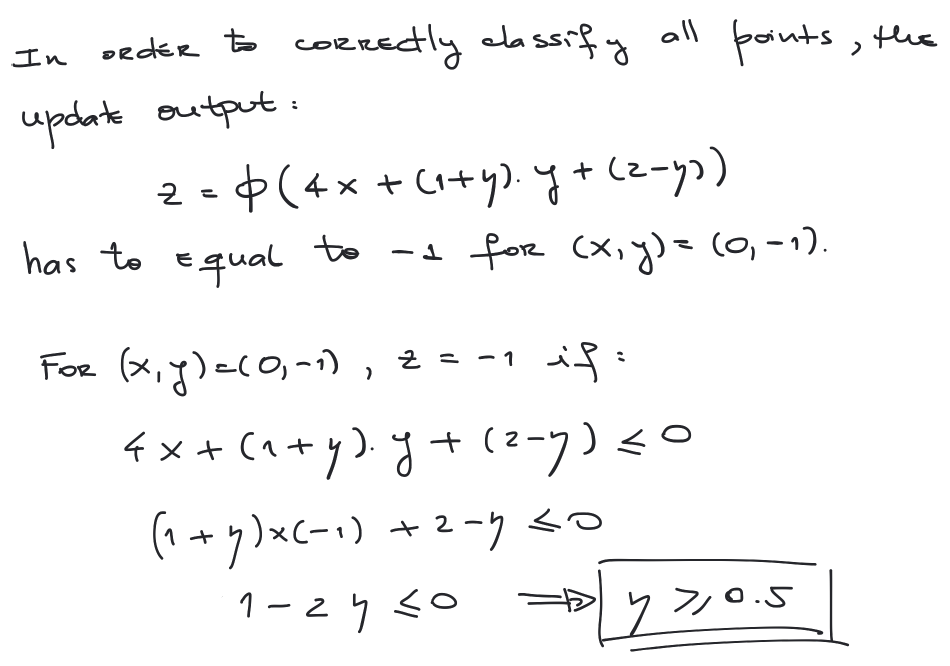 In order to correctly classify all points, the
update output:
z = φ(4x + (1+η).y + (2-η))
has to equal to -1 for (x,y) = (0,-1).
For (x,y)=(0,-1), z = -1 if:
4x + (1+η).y + (2-η) ≤ 0
(1+η)x(-1) + 2-η ≤ 0
1-2η ≤ 0 ⇒ η ≥ 0.5